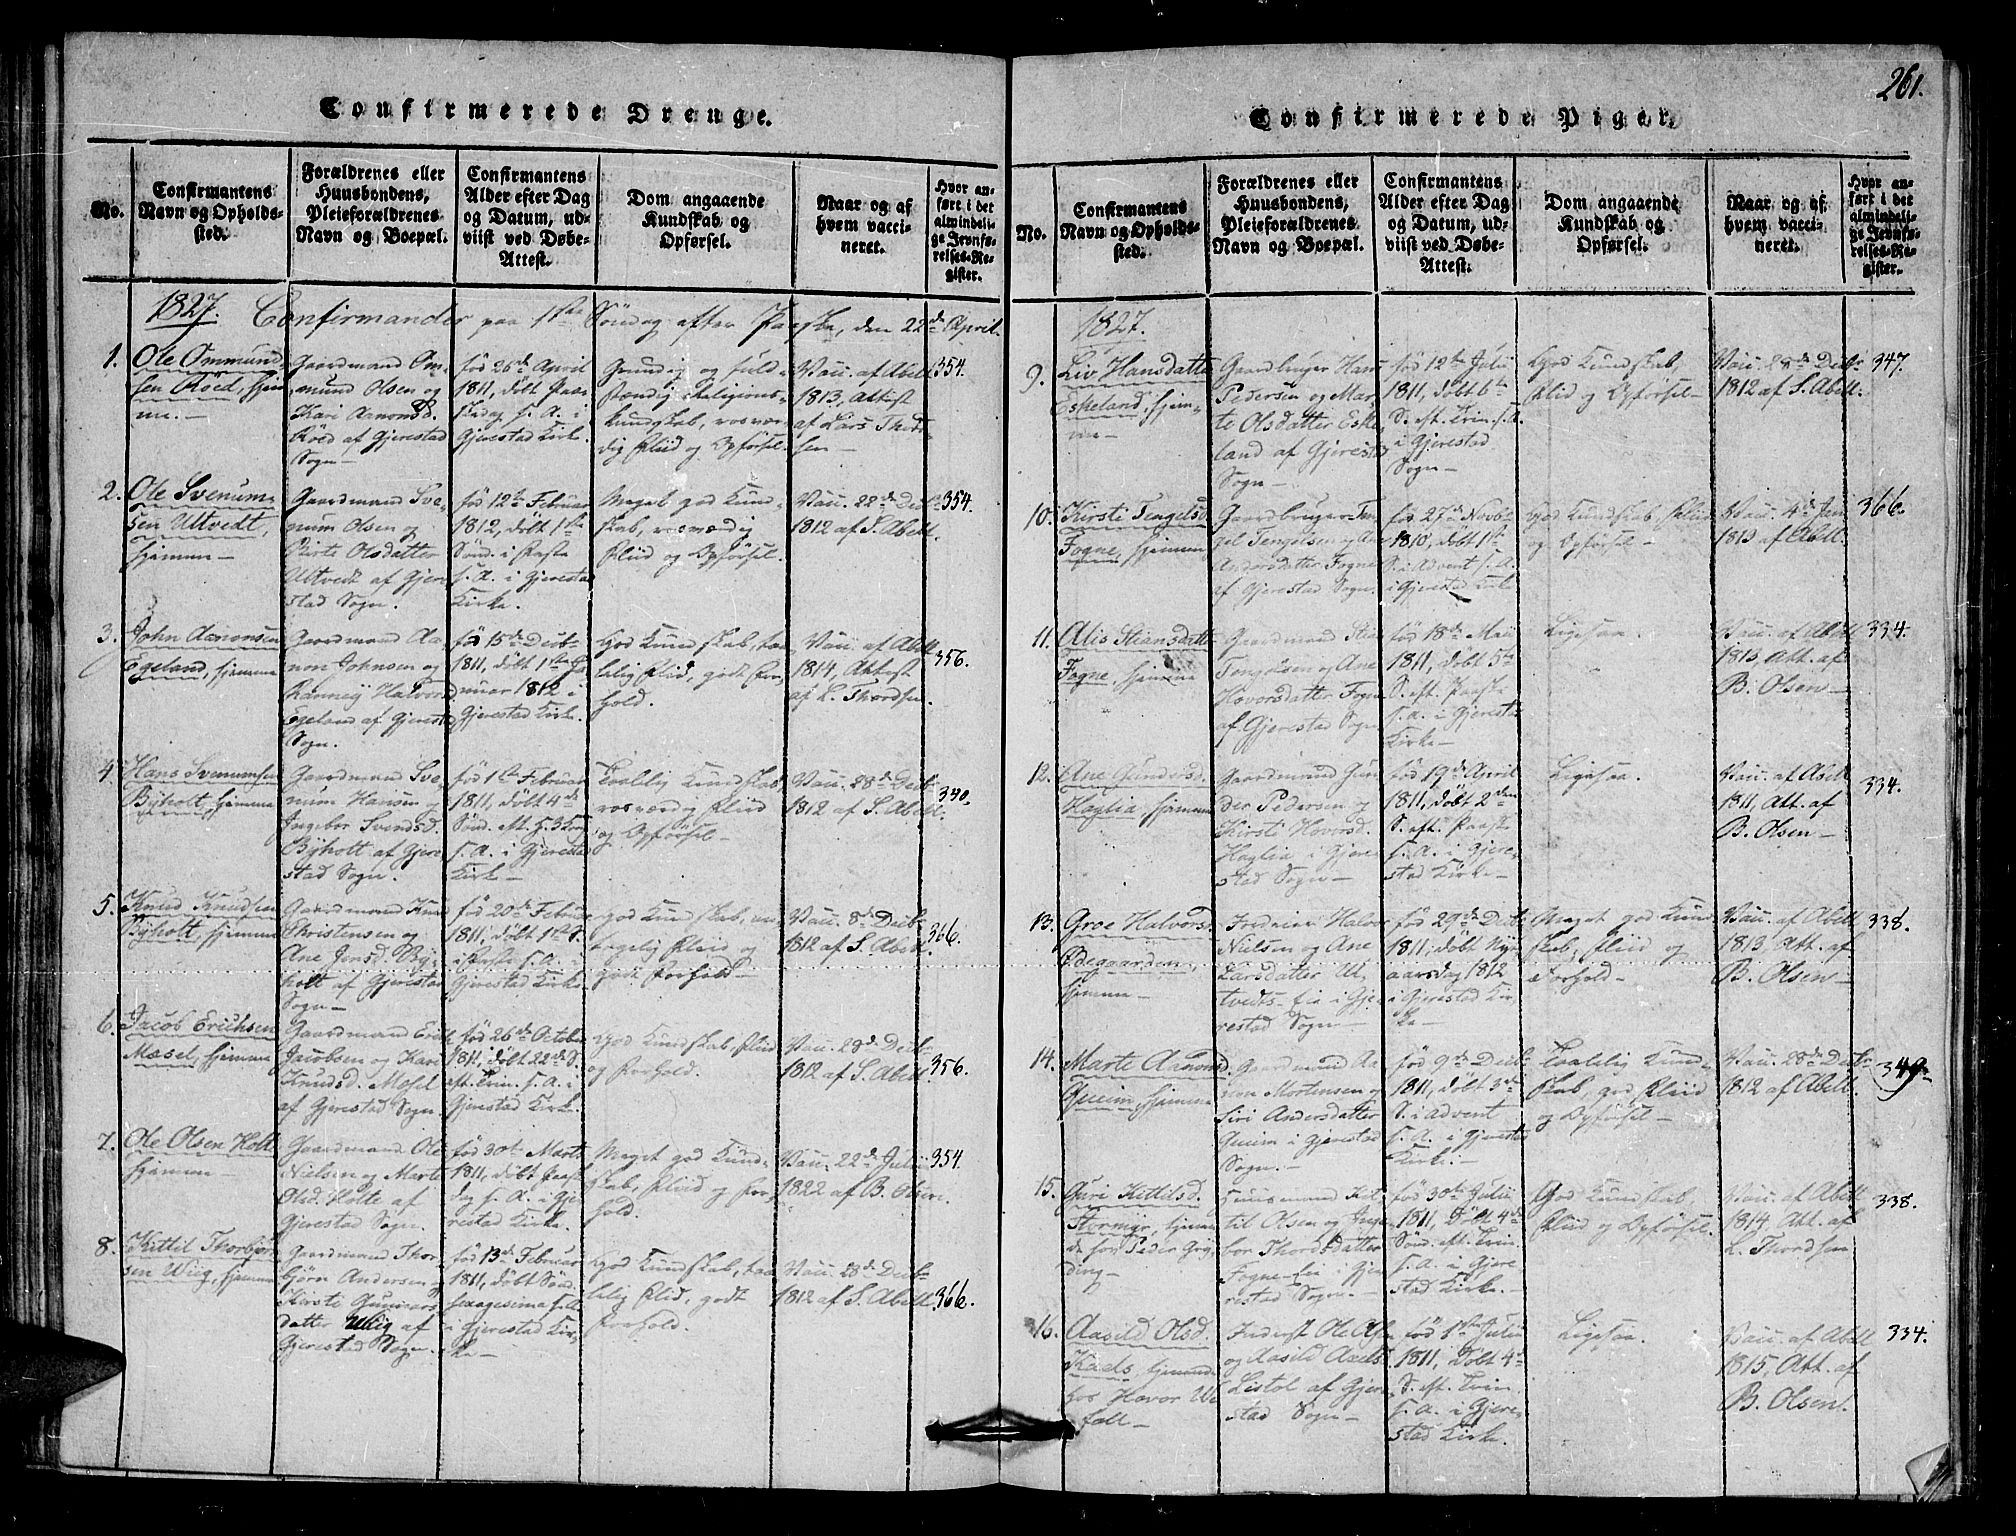 261.
Confirmerede Drenge.
No.
Confirmantens
Navn og Opholds-
sted.
Forældrenes eller
Huusbondens,
Pleieforældrenes
Navn og Boepæl.
Confirmantens
Alder efter Dag
og Datum, ud-
viist ved Døbe-
Attest.
Dom angaaende
Kundskab og
Opførsel.
Naar og af
hvem vacci-
neret.
Hvor an-
ført i det
almindeli-
ge Jevnfø-
relses-Re-
gister.
1827. Confirmander paa 1ste Søndag efter Paaske, den 22de April.
1.
Ole Ommund-
sen Röed, hjem-
me.
Gaardmand Om-
mund Olsen og
Kari Aanonsd.
Röed af Gjerestad
Sogn
fød 26de April
1811, døbt Paa-
skedag s. A. i
Gjerestad Kirke.
Grundig og fuld-
stændig Religions-
kundskab, rosvær-
dig Fliid og Opførsel.
Vacc. af Abell
1813, Attest
af Lars Thord-
sen
354.
2.
Ole Svenum-
sen Ultvedt,
hjemme
Gaardmand Sve-
num Olsen og
Birte Olsdatter
Ultvedt af Gjere-
stad Sogn.
fød 12te Februar
1812, døbt 1ste
Sønd. i Faste
s. A. i Gjerestad
Kirke.
Meget god Kund-
skab, rosværdig
Fliid og Opførsel.
Vacc. 22de Decb.
1812 af S. Abell.
354.
3.
John Aanonsen
Egeland, hjemme
Gaardmand Aa-
non Johnsen og
Rønnev Halvors
Egeland af Gjerestad
Sogn.
fød 15de Decb.
1811, døbt 1ste Ja-
nuar 1812 i
Gjerestad Kirke.
God Kundskab, taa-
lelig Fliid, godt For-
hold.
Vacc. af Abell
1814, Attest
af L. Thordsen.
356.
4.
Hans Svenumsen
Byholt, hjemme
Gaardmand Sve-
num Hansen og
Ingebor Svends.
Byholt af Gjere-
stad Sogn.
fød 1ste Februar
1811, døbt 4de
Sønd.
s. A. i Gjerestad
Kirke
Taalelig Kundskab,
rosværdig Fliid
og Opførsel
Vacc. 28de Decb.
1812 af S. Abell.
340.
5.
Knud Knudsen
Byholt, hjemme
Gaardmand Knud
Christensen og
Ane Jensd. By-
holt af Gjerestad
Sogn
fød 20de Februar
1811, døbt 1ste S.
i Faste s. A. i
Gjerestad Kirke.
God Kundskab,
Fliid og
godt Forhold
Vacc. 8de Decb.
1812 af S. Abell.
366.
6.
Jacob Erichsen
Mæsel, hjemme
Gaardmand Erik
Jacobsen og Kari
Knudsd. Mæsel
af Gjerestad Sogn.
fød 26de October
1811, døbt 22de S.
eft. Trin. s. A. i
Gjerestad Kirke.
God Kundskab, Fliid
og Forhold.
Vacc. 28de Decb.
1812 af S. Abell
356.
7.
Ole Olsen Holt
hjemme
Gaardmand Ole
Nielsen og Marte
Olsd. Holte af
Gjerestad Sogn.
fød 30te Marts
1811, døbt Paaske-
dag s. A. i Gje-
restad Kirke.
Meget god Kund-
skab, Fliid og For-
hold.
Vacc. 22de Julii
1822 af B. Olsen.
354.
8.
Kittil Thorbjørn-
sen Wiig, hjemme
Gaardmand Thor-
bjørn Andersen og
Kirsti Gunnars-
datter Wiig af
Gjerestad Sogn.
fød 13de Februar
1811, døbt Sønd.
Sexagesima s. A.
i Gjerestad Kir-
ke
God Kundskab, taa-
lelig Fliid, godt
Forhold.
Vacc. 28de Decb.
1812 af S. Abell.
366.
Confirmerede Piger.
No.
Confirmantens
Navn og Opholds-
sted.
Forældrenes eller
Huusbondens,
Pleieforældrenes
Navn og Boepæl.
Confirmantens
Alder efter Dag
og Datum, ud-
viist ved Døbe-
Attest.
Dom angaaende
Kundskab og
Opførsel.
Naar og af
hvem vacci-
neret.
Hvor an-
ført i det
almindeli-
ge Jevnfø-
relses-Re-
gister.
1827.
9.
Liv Hansdatter
Eskeland, hjem-
me
Gaardbruger Hans
Pedersen og Mar-
te Olsdatter Eske-
land af Gjerestad
Sogn
fød 12te Julii
1811, døbt 6te
S. eft. Trin. s. A.
i Gjerestad
Sogn
God Kundskab,
Fliid og Opførsel
Vacc. 28de Decb.
1812 af S. Abell.
347.
10.
Kirsti Tengelsd.
Fogne, hjemme
Gaardbruger Ten-
gel Tengelsen og Ane
Andersdatter Fogne
af Gjerestad Sogn.
fød 27de Novb.
1810, døbt 1ste
S. i Advent s. A.
i Gjerestad Kirke
God Kundskab, Fliid
og Opførsel
Vacc. 4de Jun
1813 af Abell.
366.
11.
Alis Stiansdatter
Fogne, hjemme
Gaardmand Stian
Tengelsen og Ane
Hovorsdatter Fogne
af Gjerestad Sogn
fød 18de Maii
1811, døbt 5te
S. eft. Paaske
s. A. i Gjerestad
Kirke
Ligesaa.
Vacc. af Abell
1813, Att. af
B. Olsen
334.
12.
Ane Gundersd.
Haglia, hjemme
Gaardmand Gun-
der Pedersen og
Kirsti Hovorsd.
Haglia i Gjere-
stad Sogn
fød 19de April
1811, døbt 2den
S. eft. Paaske
s. A. i Gjere-
stad Kirke
Ligesaa.
Vacc. af Abell
1811, Att. af
B. Olsen
334.
13.
Groe Halvorsd.
Ødegaarden,
hjemme
Halvor
Nielsen og Ane
Larsdatter Ul-
tvedts-Eie i Gje-
restad Sogn
fød 29de Decb.
1811, døbt Nyt-
aarsdag 1812
i Gjerestad Kir-
ke
Meget god Kund-
skab, Fliid og
Forhold
Vacc. af Abell
1813, Att. af
B. Olsen
338.
14.
Marte Aanonsd.
Qveim, hjemme
Gaardmand Aa-
non Mortensen og
Siri Andersdatter
Qveim i Gjerestad
Sogn.
fød 9de Decb.
1811, døbt 3de
S. i Advent
s. A. i Gjerestad
Kirke.
Taalelig Kund-
skab, god Fliid
og Opførsel
Vacc. 28de Decb.
1812 af Abell.
349.
15.
Guri Kittilsd.
Stormyr, tjenen-
de hos Peder Gry-
ding
Huusmand Kit-
til Olsen og Inge-
bor Thordsdatter
Fogne-Eie i Gje-
restad Sogn.
fød 30te Julii
1811, Døbt 4de
Sønd. eft. Trin.
s. A. i Gjere-
stad Kirke.
God Kundskab,
Fliid og Opførsel.
Vacc. af Abell
1814. Att. af
L. Thordsen
338.
16.
Aasild Olsd.
tjenende
hos Hovor
Inderst Ole
og Aasild
Listøl af Gjere-
stad Sogn
fød 1ste Julii
1811, Døbt 4de
S. eft. Trin.
s. A. i Gjere-
stad Kirke.
Ligesaa.
Vacc. af Abell
1815, Att. af
B. Olsen.
334.